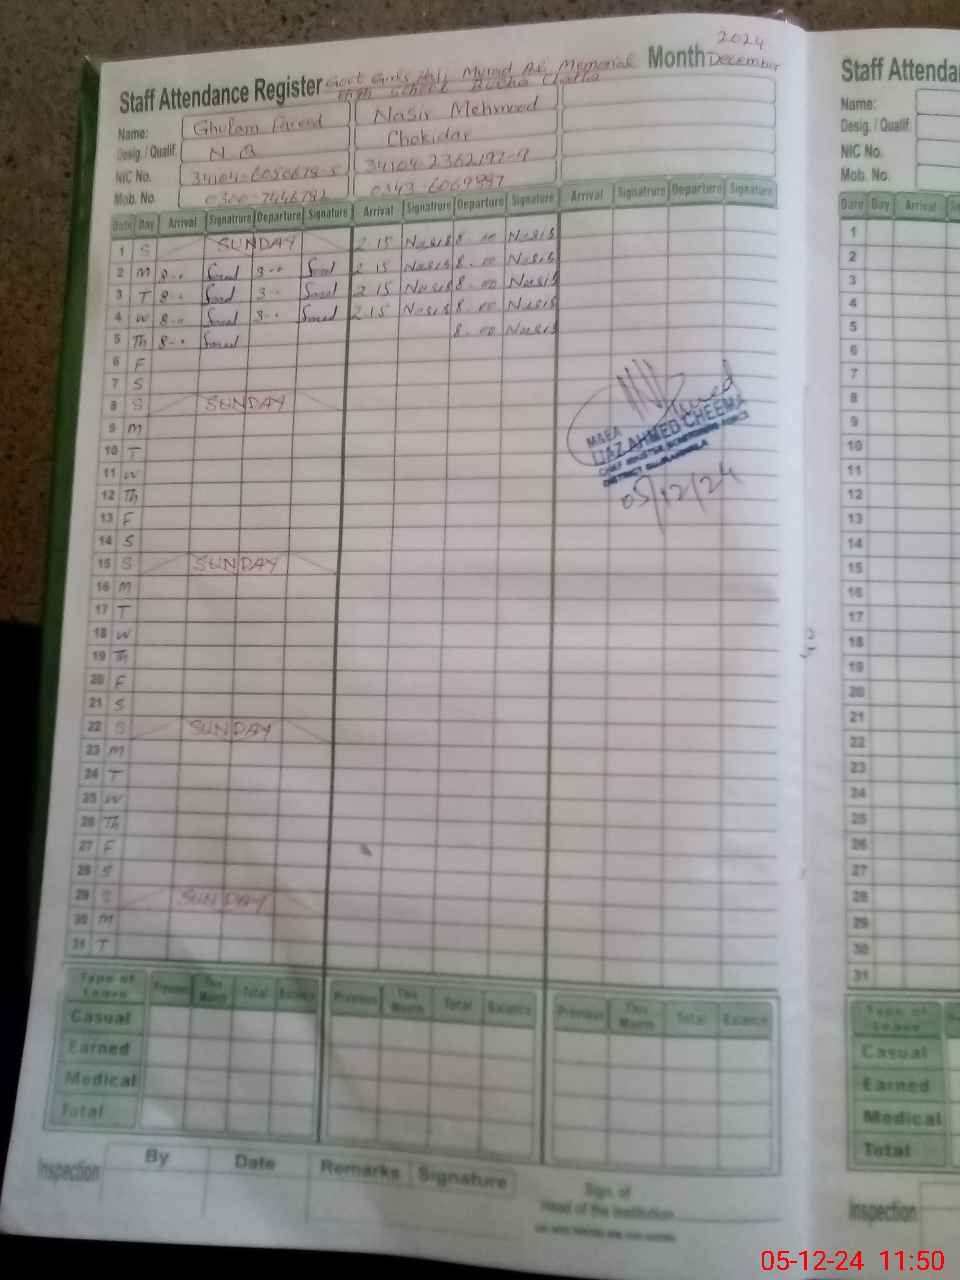 2024
Staff Attendance Register Govt Girls Haji Murad Ali Memorial Month December
High School Budha Chatha
Name: Ghulam Fareed Nasir Mehmood
Desig. / Qualif. N.Q Chokidar
NIC No. 34104-6050678-5 34104-2362197-9
Mob. No. 0300-7446782 0343-6069997
Date Day Arrival Signatrure Departure Signature Arrival Signatrure Departure Signature Arrival Signatrure Departure Signature
1 S SUNDAY 2 15 Nasir 8.00 Nasir
2 M 8-00 3-00 2 15 Nasir 8.00 Nasir
3 T 8-00 3-00 2 15 Nasir 8.00 Nasir
4 W 8-00 3-00 2 15 Nasir 8.00 Nasir
5 Th 8-00 8.00 Nasir
6 F
7 S
8 S SUNDAY
9 M
10 T
11 W
12 Th
13 F
14 S
15 S SUNDAY
16 M
17 T
18 W
19 Th
20 F
21 S
22 S SUNDAY
23 M
24 T
25 W
26 Th
27 F
28 S
29 S SUNDAY
30 M
31 T
MAEA
IJAZ AHMED CHEEMA
05/12/24
Type of Leave Previous This Month Total Balance Previous This Month Total Balance Previous This Month Total Balance
Casual
Earned
Medical
Total
Inspection By Date Remarks Signature
Sign. of
Head of the Institution
Staff Attenda
Name:
Desig. / Qualif.
NIC No.
Mob. No.
Date Day Arrival
1
2
3
4
5
6
7
8
9
10
11
12
13
14
15
16
17
18
19
20
21
22
23
24
25
26
27
28
29
30
31
Type of Leave
Casual
Earned
Medical
Total
Inspection
05-12-24 11:50